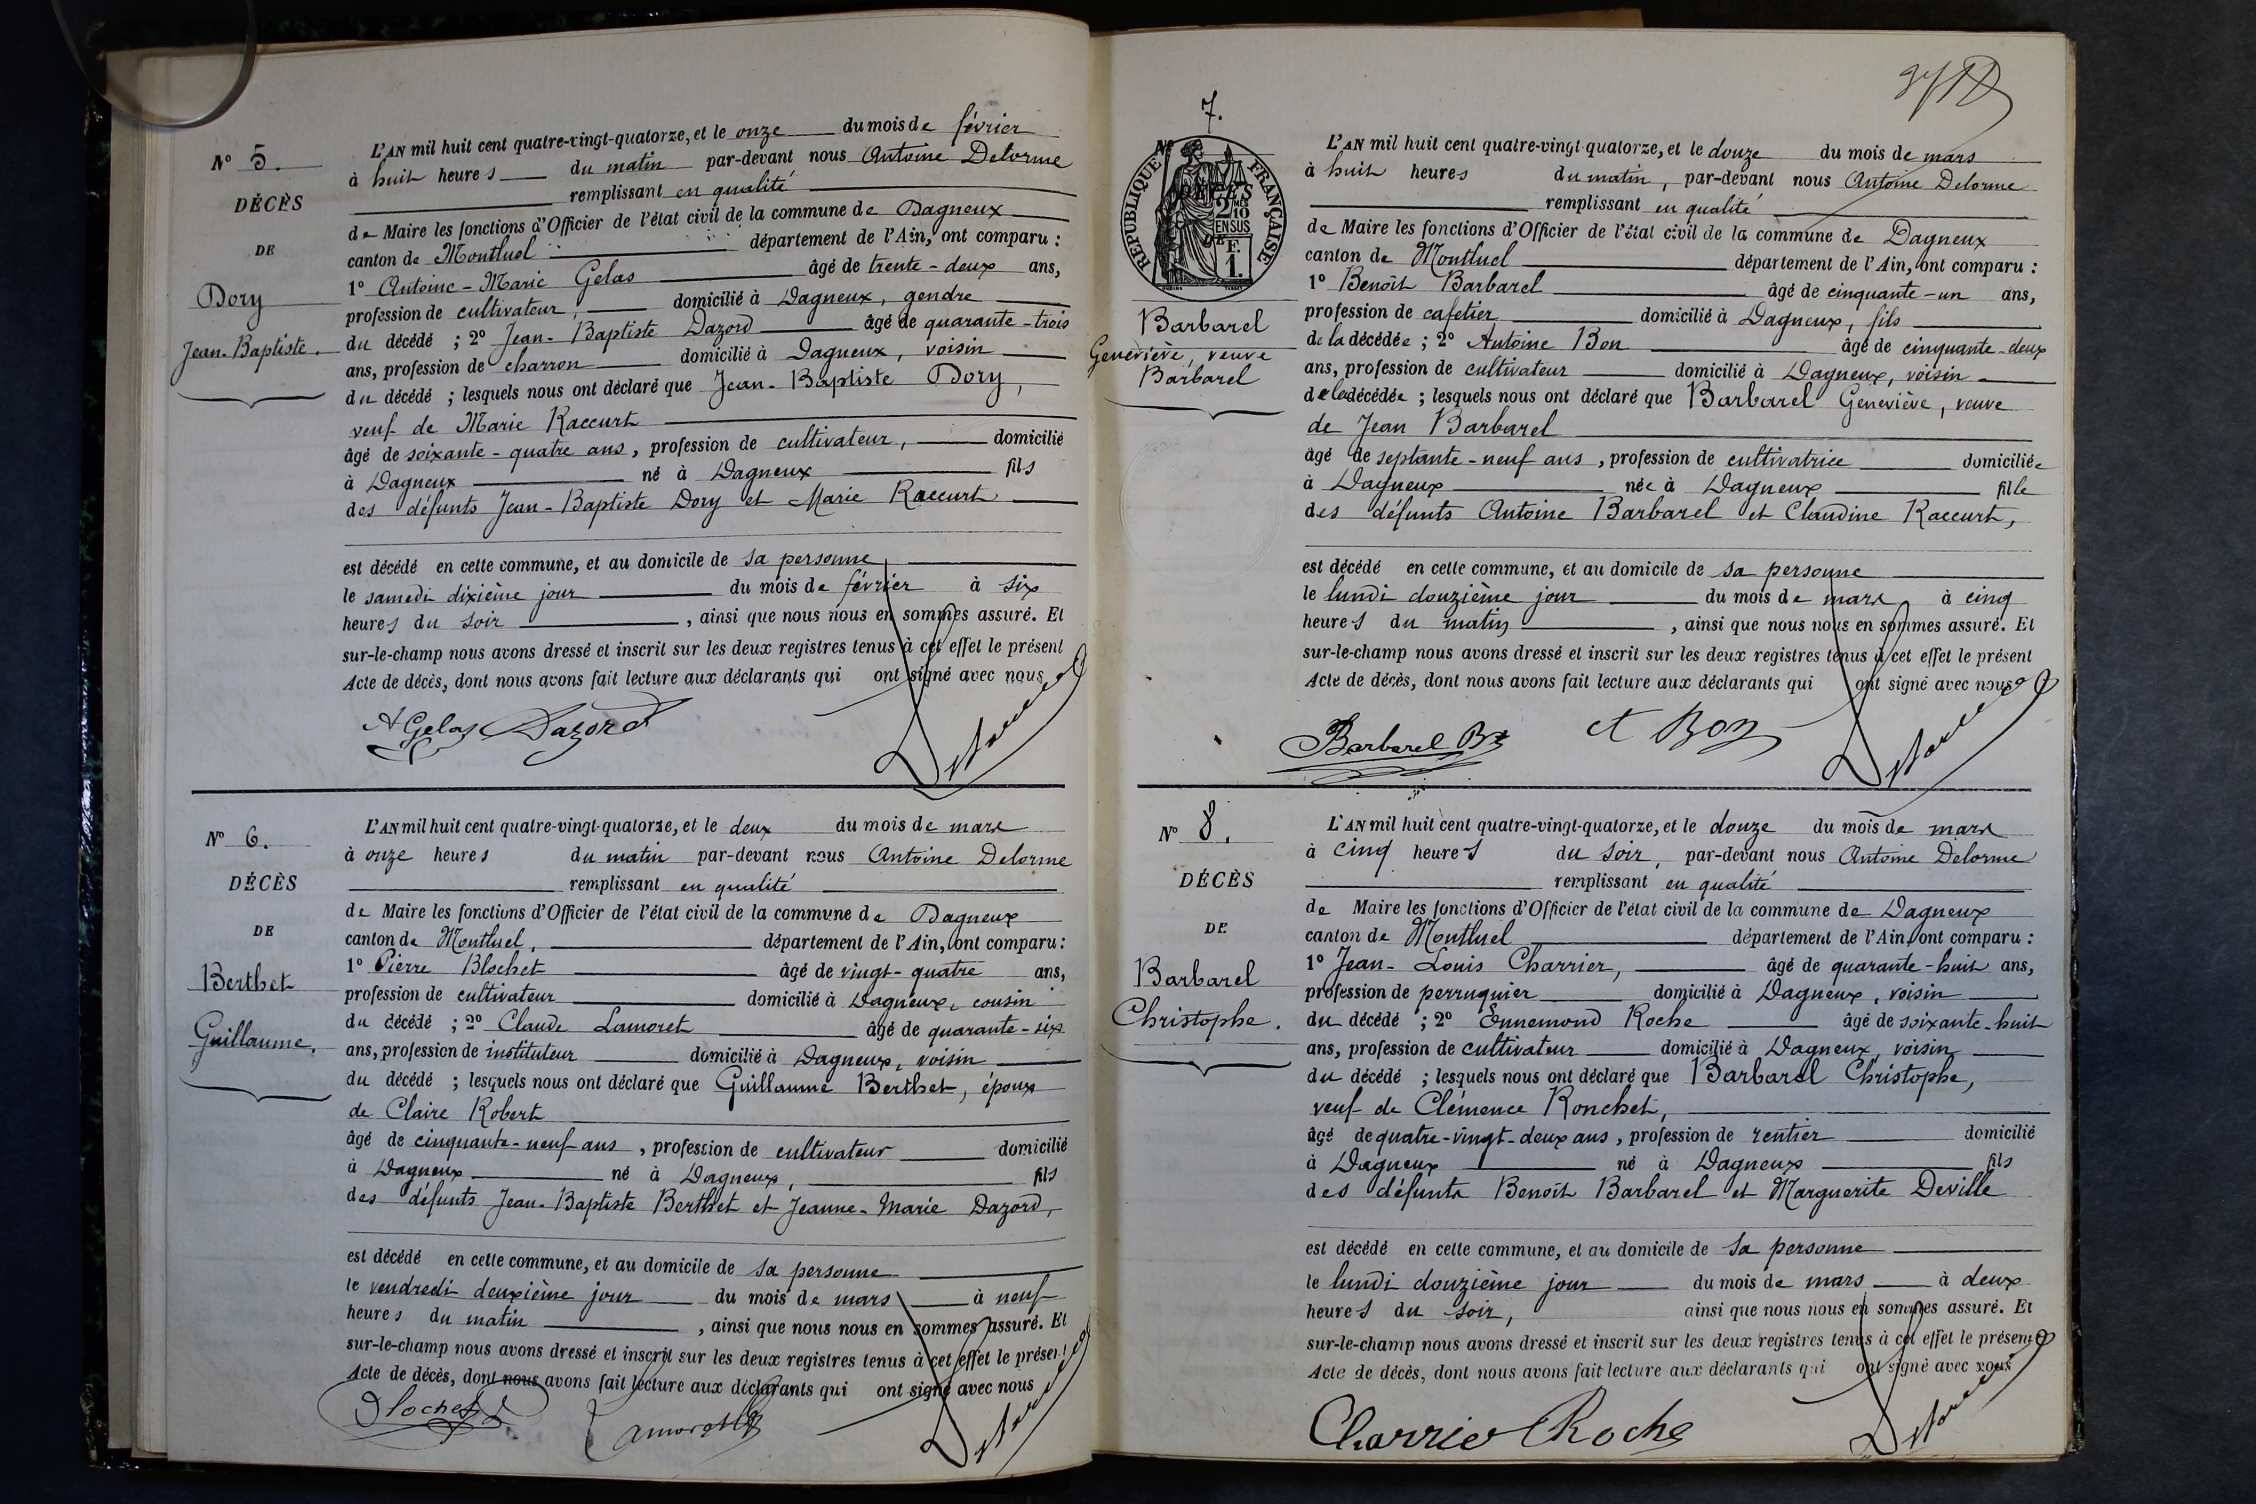 N° 5.
DÉCÈS
DE
Dory
Jean-Baptiste.
L'AN mil huit cent quatre-vingt-quatorze, et le onze du mois de février
à huit heures du matin par-devant nous Antoine Delorme
remplissant en qualité
de Maire les fonctions d'Officier de l'état civil de la commune de Dagneux
canton de Montluel département de l'Ain, ont comparu :
1° Antoine-Marie Gelas âgé de trente-deux ans,
profession de cultivateur, domicilié à Dagneux, gendre
du décédé ; 2° Jean-Baptiste Dazord âgé de quarante-trois
ans, profession de charron domicilié à Dagneux, voisin
du décédé ; lesquels nous ont déclaré que Jean-Baptiste Dory,
veuf de Marie Raccurt
âgé de soixante-quatre ans, profession de cultivateur, domicilié
à Dagneux né à Dagneux fils
des défunts Jean-Baptiste Dory et Marie Raccurt
est décédé en cette commune, et au domicile de sa personne
le samedi dixième jour du mois de février à six
heures du soir , ainsi que nous nous en sommes assuré. Et
sur-le-champ nous avons dressé et inscrit sur les deux registres tenus à cet effet le présent
Acte de décès, dont nous avons fait lecture aux déclarants qui ont signé avec nous
A Gelas Dazord Delorme
N° 6.
DÉCÈS
DE
Berthet
Guillaume.
L'AN mil huit cent quatre-vingt-quatorze, et le deux du mois de mars
à onze heures du matin par-devant nous Antoine Delorme
remplissant en qualité
de Maire les fonctions d'Officier de l'état civil de la commune de Dagneux
canton de Montluel. département de l'Ain, ont comparu :
1° Pierre Blochet âgé de vingt-quatre ans,
profession de cultivateur domicilié à Dagneux, cousin
du décédé ; 2° Claude Lamoret âgé de quarante-six
ans, profession de instituteur domicilié à Dagneux, voisin
du décédé ; lesquels nous ont déclaré que Guillaume Berthet, époux
de Claire Robert
âgé de cinquante-neuf ans , profession de cultivateur domicilié
à Dagneux né à Dagneux, fils
des défunts Jean-Baptiste Berthet et Jeanne-Marie Dazord,
est décédé en cette commune, et au domicile de sa personne
le vendredi deuxième jour du mois de mars à neuf
heures du matin , ainsi que nous nous en sommes assuré. Et
sur-le-champ nous avons dressé et inscrit sur les deux registres tenus à cet effet le présent
Acte de décès, dont nous avons fait lecture aux déclarants qui ont signé avec nous
Blochet Lamoret Delorme
7.
N°
RÉPUBLIQUE FRANÇAISE
DÉCÈS
2 MES
10
EN SUS
DE
F.
1.
Barbarel
Geneviève, veuve
Barbarel
L'AN mil huit cent quatre-vingt-quatorze, et le douze du mois de mars
à huit heures du matin, par-devant nous Antoine Delorme
remplissant en qualité
de Maire les fonctions d'Officier de l'état civil de la commune de Dagneux
canton de Montluel département de l'Ain, ont comparu :
1° Benoît Barbarel âgé de cinquante-un ans,
profession de cafetier domicilié à Dagneux, fils
de la décédée ; 2° Antoine Bon âgé de cinquante-deux
ans, profession de cultivateur domicilié à Dagneux, voisin
de la décédée ; lesquels nous ont déclaré que Barbarel Geneviève, veuve
de Jean Barbarel
âgé de septante-neuf ans , profession de cultivatrice domiciliée
à Dagneux née à Dagneux fille
des défunts Antoine Barbarel et Claudine Raccurt,
est décédé en cette commune, et au domicile de sa personne
le lundi douzième jour du mois de mars à cinq
heures du matin , ainsi que nous nous en sommes assuré. Et
sur-le-champ nous avons dressé et inscrit sur les deux registres tenus à cet effet le présent
Acte de décès, dont nous avons fait lecture aux déclarants qui ont signé avec nous
Barbarel Bt A Bon Delorme
N° 8.
DÉCÈS
DE
Barbarel
Christophe.
L'AN mil huit cent quatre-vingt-quatorze, et le douze du mois de mars
à cinq heures du soir, par-devant nous Antoine Delorme
remplissant en qualité
de Maire les fonctions d'Officier de l'état civil de la commune de Dagneux
canton de Montluel département de l'Ain, ont comparu :
1° Jean-Louis Charrier, âgé de quarante-huit ans,
profession de perruquier domicilié à Dagneux, voisin
du décédé ; 2° Ennemond Roche âgé de soixante-huit
ans, profession de cultivateur domicilié à Dagneux, voisin
du décédé ; lesquels nous ont déclaré que Barbarel Christophe,
veuf de Clémence Ronchet,
âgé de quatre-vingt-deux ans, profession de rentier domicilié
à Dagneux né à Dagneux fils
des défunts Benoît Barbarel et Marguerite Deville
est décédé en cette commune, et au domicile de sa personne
le lundi douzième jour du mois de mars à deux
heures du soir, ainsi que nous nous en sommes assuré. Et
sur-le-champ nous avons dressé et inscrit sur les deux registres tenus à cet effet le présent
Acte de décès, dont nous avons fait lecture aux déclarants qui ont signé avec nous
Charrier Roche Delorme